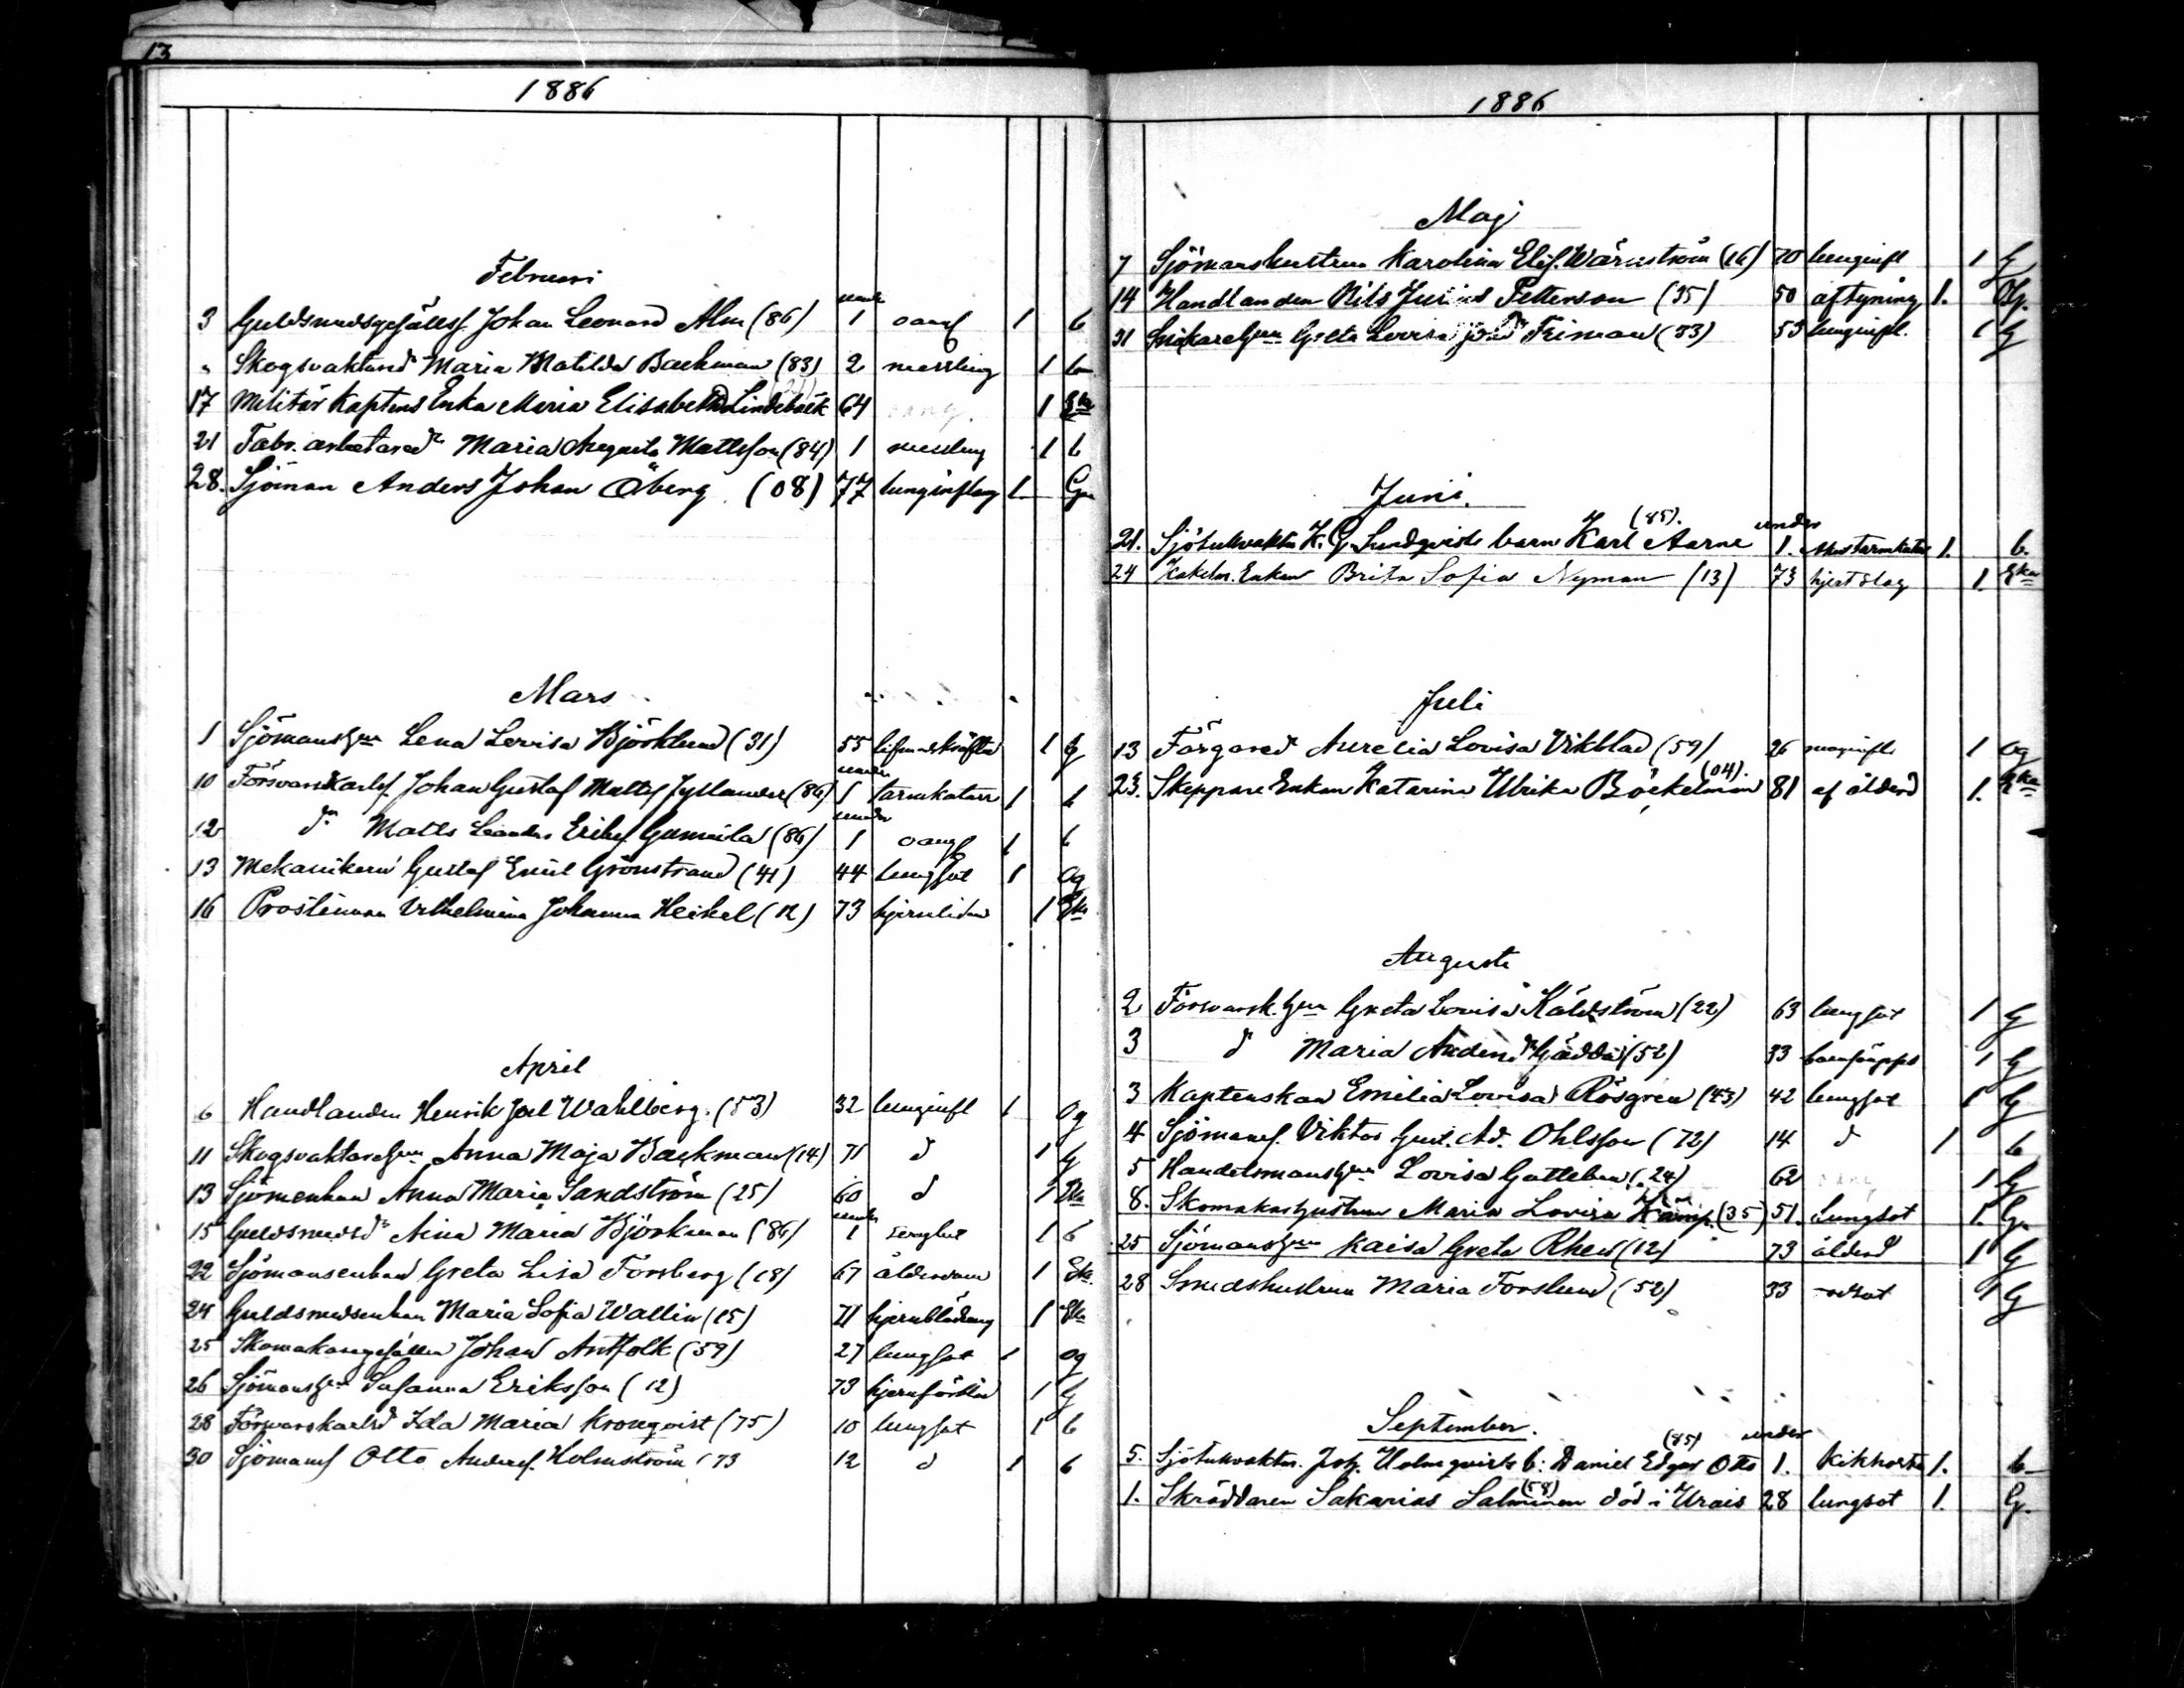 13
1886
Februari
3 Guldsmedsgesällsf. Johan Leonard Alm (86) under 1 oang 1 b
" Skogsvaktared Maria Matilda Backman (83) 2 messling 1 b
17 Militär Kaptens Enka Maria Elisabeth Lindebäck (21) 64 oang. 1 Eka
21 Fabr. arbetared Maria Augusta Mattsson (84) 1 messling 1 b
28. Sjöman Anders Johan Öberg. (08) 77 lunginflam 1 G
Mars
1 Sjömanshun Lena Lovisa Björklund (31) 55 lifmoderkräfta 1 g
10 Försvarskarlsf. Johan Gustaf Mattsf Jyllander (86) under 1 tarmkatarr 1 b
12 do Matts Leander Eriksf Gammila (86) under 1 oang 1 b
13 Mekanikern Gustaf Emil Grönstrand (41) 44 lungsot 1 og
16 Prostinnan Vilhelmina Johanna Heikel (12) 73 hjernlidan 1 Eka
April
6 Handlanden Henrik Joel Wahlberg. (53) 32 lunginfl 1 og
11 Skogsvaktarehun Anna Maja Backman (14) 71 d 1 G
13 Sjömenkan Anna Maria Sandström (25) 60 d 1 Eka
15 Guldsmedsd Aina Maria Björkman (86) under 1 1 b
22 Sjömansenkan Greta Lisa Forsberg (18) 67 ålderdom 1 Ek.
24 Guldsmedsenkan Maria Sofia Wallin (15) 71 hjernblödning 1 Eka
25 Skomakaregesällen Johan Antfolk (59) 27 lungsot 1 og
26 Sjömanshun Susanna Eriksson (12) 73 1 G
28 Försvarskarlsd Ida Maria Kronqvist (75) 10 lungsot 1 b
30 Sjömansf Otto Andersf. Holmström (73 12 d 1 b
1886
Maj
7 Sjömanshustrun Karolina Elis. Wärnström (16) 70 lunginfl 1 G
14 Handlanden Nils Julius Petterson (35) 50 aftyning 1. Og.
31 Snickarehun Greta Lovisa Friman (33) 53 lunginfl. 1 G
Juni.
21. Sjötullvaktm K. G. Lundqvists barn Karl Aarne (85). under 1. 1. b.
24 Kakelm. Enkan Brita Sofia Nyman (13) 73 hjertslag 1. Eka
Juli
13 Färgared Aurelia Lovisa Vikblad (59) 26 1 og
23. Skeppare Enkan Katarina Ulrika Böckelman (04). 81 af ålderd 1. Eka
Augusti
2 Försvarsk. hun Greta Lovisa Käldström (22) 63 lungsot 1 G
3 d Maria Andersd Gädda (52) 33 1 G
3 Kaptenskan Emilia Lovisa Rosgren (43) 42 lungsot 1 G
4 Sjömansf. Viktor Gust. Ad. Ohlsson (72) 14 d 1 b
5 Handelsmanshun Lovisa Gutteben (24) 62 oang 1 G
8. Skomakarhustrun Maria Lovisa Kämp. (35) 51. Lungsot 1. G.
25 Sjömanshun Kaisa Greta Rhen (12) 73 ålderd 1 G
28 Smedshustrun Maria Forslund (52) 33 1 G
September.
5. Sjötullvaktm. Joh. Holmqvists b: Daniel Edgar Otto (85) under 1. Kikhosta 1. b.
1. Skräddaren Sakarias Salminen (58) död i Urais 28 lungsot 1. G.